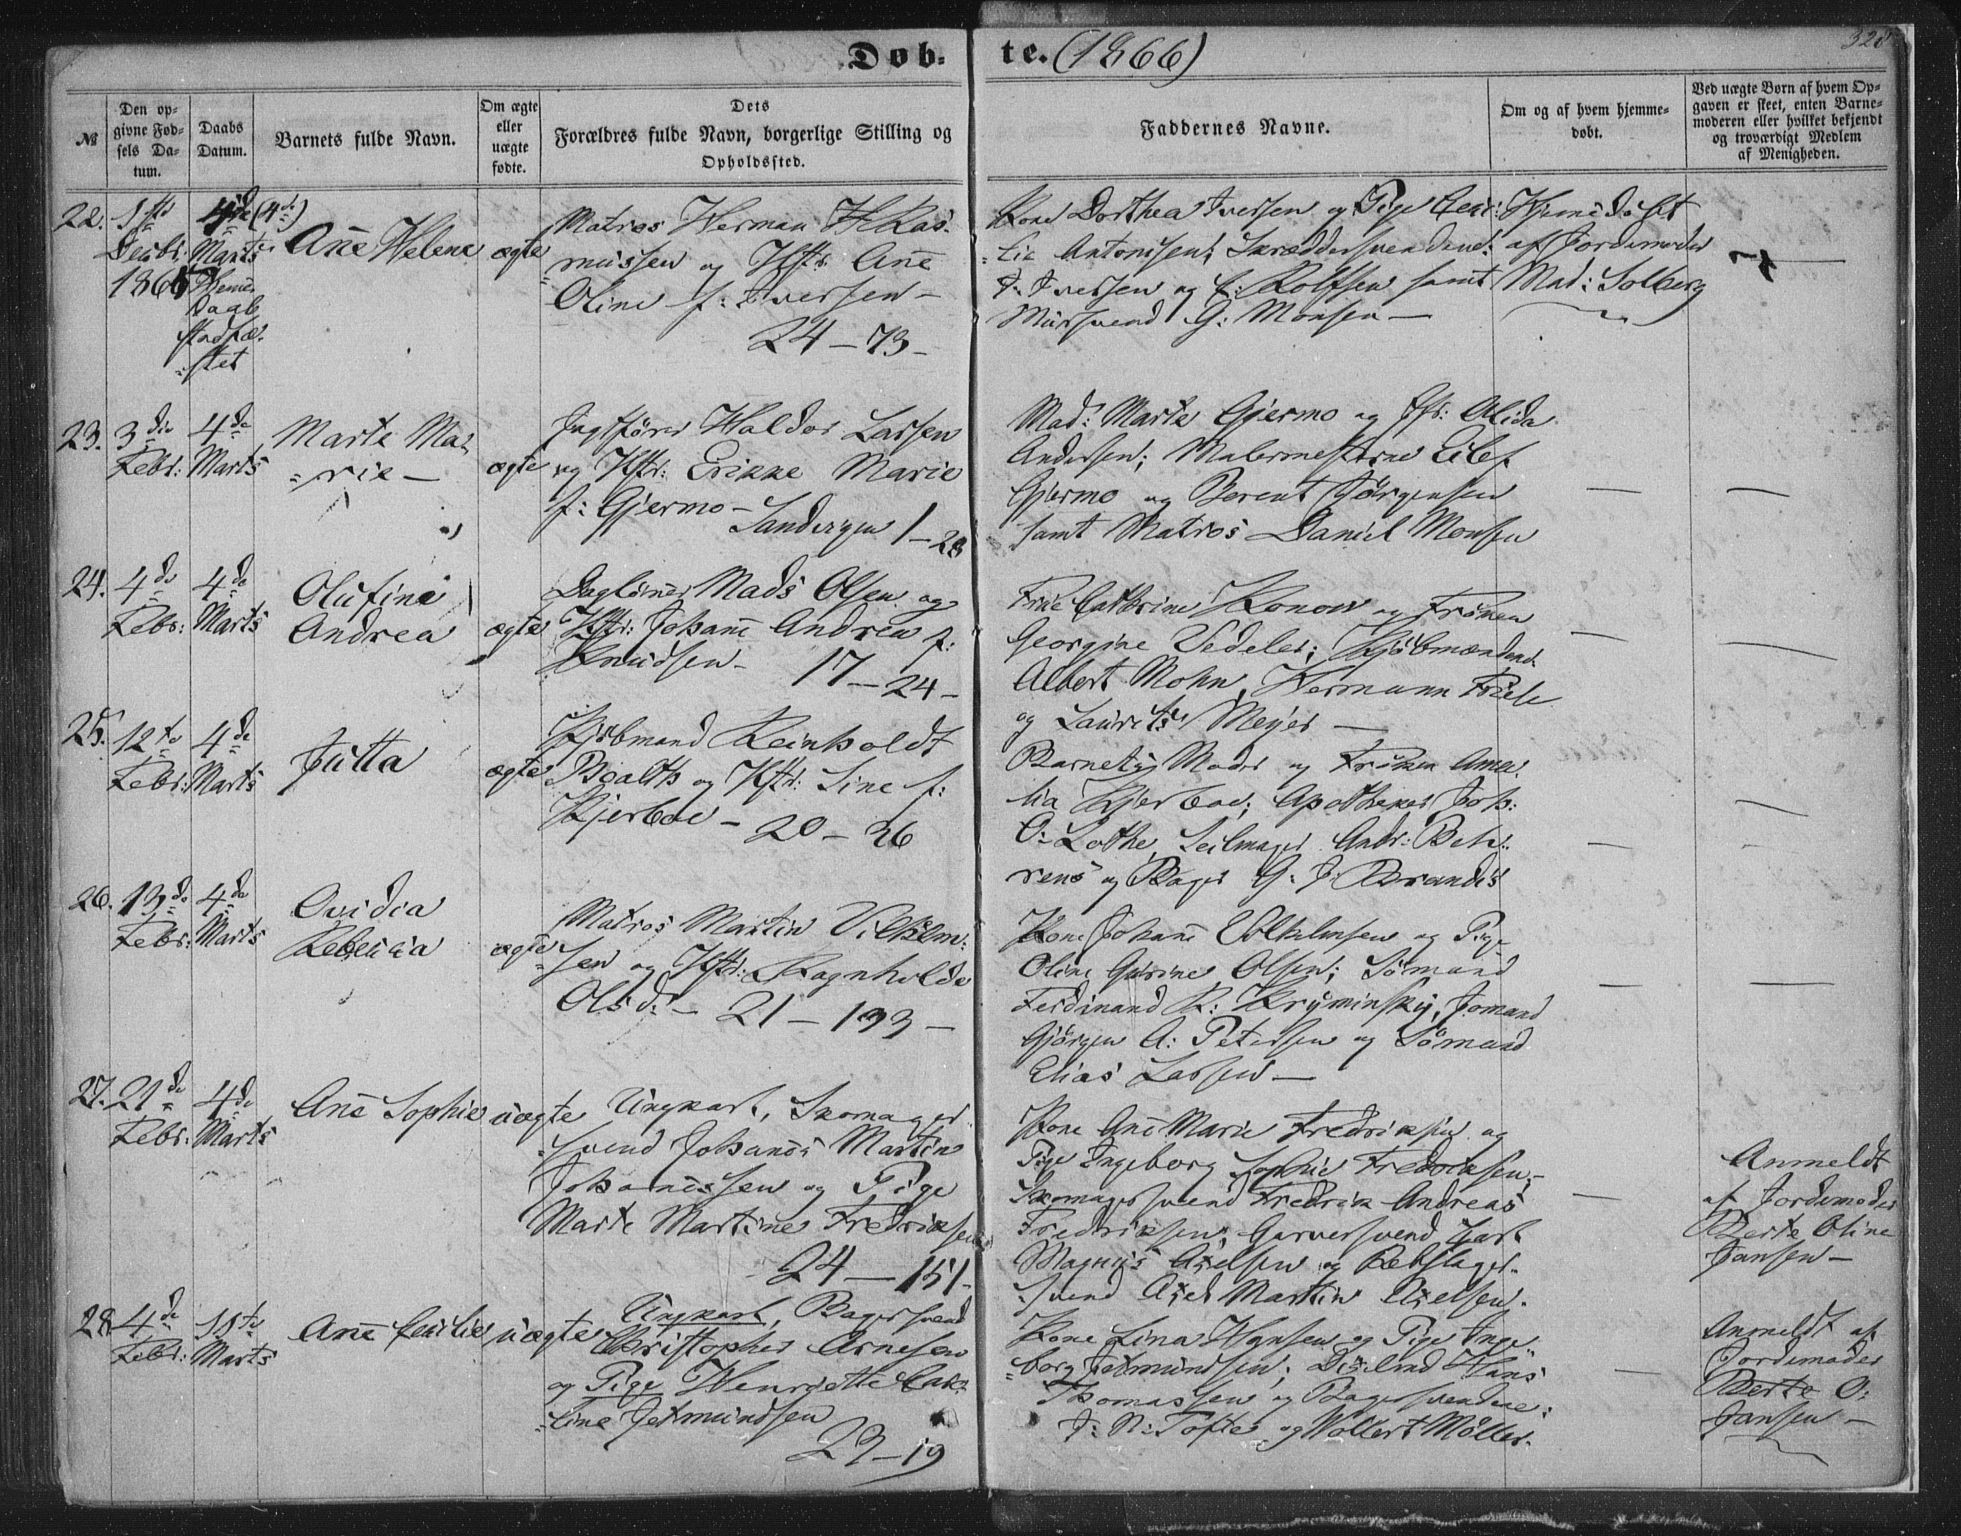 Døb-
te. (1866)
328
№
Den op-
givne Fød-
sels Da-
tum.
Daabs
Datum.
Barnets fulde Navn.
Om ægte
eller
uægte
fødte.
Dets
Forældres fulde Navn, borgerlige Stilling og
Opholdssted.
Faddernes Navne.
Om og af hvem hjemme-
døbt.
Ved uægte Børn af hvem Op-
gaven er skeet, enten Barne-
moderen eller hvilket bekjendt
og troværdigt Medlem
af Menigheden.
22.
1ste
Decbr:
1865
4de (4de)
Marts
Hjeme
Daab
stadfæ-
stet
Ane Helene
ægte
Matros Herman H Ras-
mussen og Hstr: Ane
Oline f: Iversen -
24 - 73 -
Kone Dorthea Iversen og Pige Ceci-
lie Antonisen; Skræddersvendene:
I: Iversen og E: Rolfsen samt
Mursvend G: Monsen -
Hjemedøbt
af Jordemoder
Mad: Solberg
23.
3die
Febr:
4de
Marts
Marte Ma-
rie -
ægte
Jagtfører Haldor Larsen
og Hstr: Erikke Marie
f: Gjermo -
Sandvigen 1 - 28
Mad: Marte Gjermo og Jfr: Alida
Andersen; Malermestrene Eilef
Gjermo og Berent Jörgensen
samt Matros Daniel Monsen
24.
4de
Febr:
4de
Marts
Olufine
Andrea
ægte
Daglönner Mads Olsen og
Hstr: Johane Andrea f:
Knudsen - 17 - 24 -
Frue Cathrine Konow og Fröken
Georgine Vedeler; Kjöbmændene
Albert Mohn, Hermann Friele
og Laurits Meyer -
25.
12te
Febr:
4de
Marts
Jutta
ægte
Kjöbmand Reinholdt
Boalth og Hstr: Sine f:
Kjerboe - 20 - 36
Barnets Moder og Fröken Ama-
lia Kjerboe; Apotheker Joh:
O: Lothe, Seilmager Andr: Beh-
rens og Bager G. J: Brandis
26.
13de
Febr:
4de
Marts
Ovidia
Rebecca
ægte
Matros Martin Vilhelm-
sen og Hstr: Ragnhilde
Olsd: - 21 - 133 -
Kone Johane Vilhelmsen og Pige
Oline Gurine Olsen; Sömand
Ferdinand R: Kryminsky, Jomand
Gjörgen A: Petersen og Sömand
Elias Larsen -
27.
21de
Febr:
4de
Marts
Ane Sophie
uægte
Ungkarl, Skomager-
svend Johanes Martin
Johanessen og Pige
Marte Martine Fredriksen
24 - 151 -
Kone Ane Marie Fredriksen og
Pige Ingeborg Sophie Fredriksen;
Skomagersvend Fredrik Andreas
Fredriksen; Garversvend Carl
Magnus Axelsen og Rebslager-
svend Axel Martin Axelsen.
Anmeldt
af Jordemoder
Berte Oline
Jansen -
28.
4de
Febr:
11te
Marts
Ane Cecilie
uægte
Ungkarl, Bagersvend
Christopher Arnesen
og Pige Henriette Cath-
rine Jermundsen
23 - 19
Kone Lina Hansen og Pige Inge-
borg Jermundsen; Hans
Thomassen og Bagersvendene:
J: N: Tofte og Wollert Möller.
Anmeldt af
Jordemoder
Berte O:
Jansen -